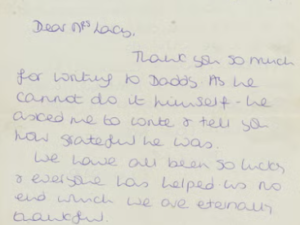 Dear Mrs Lacy,
Thank you so much
for writing to Daddy. As he
cannot do it himself - he
asked me to write & tell you
how grateful he was.
We have all been so lucky
& everyone has helped us no
end which we are eternally
thankful.